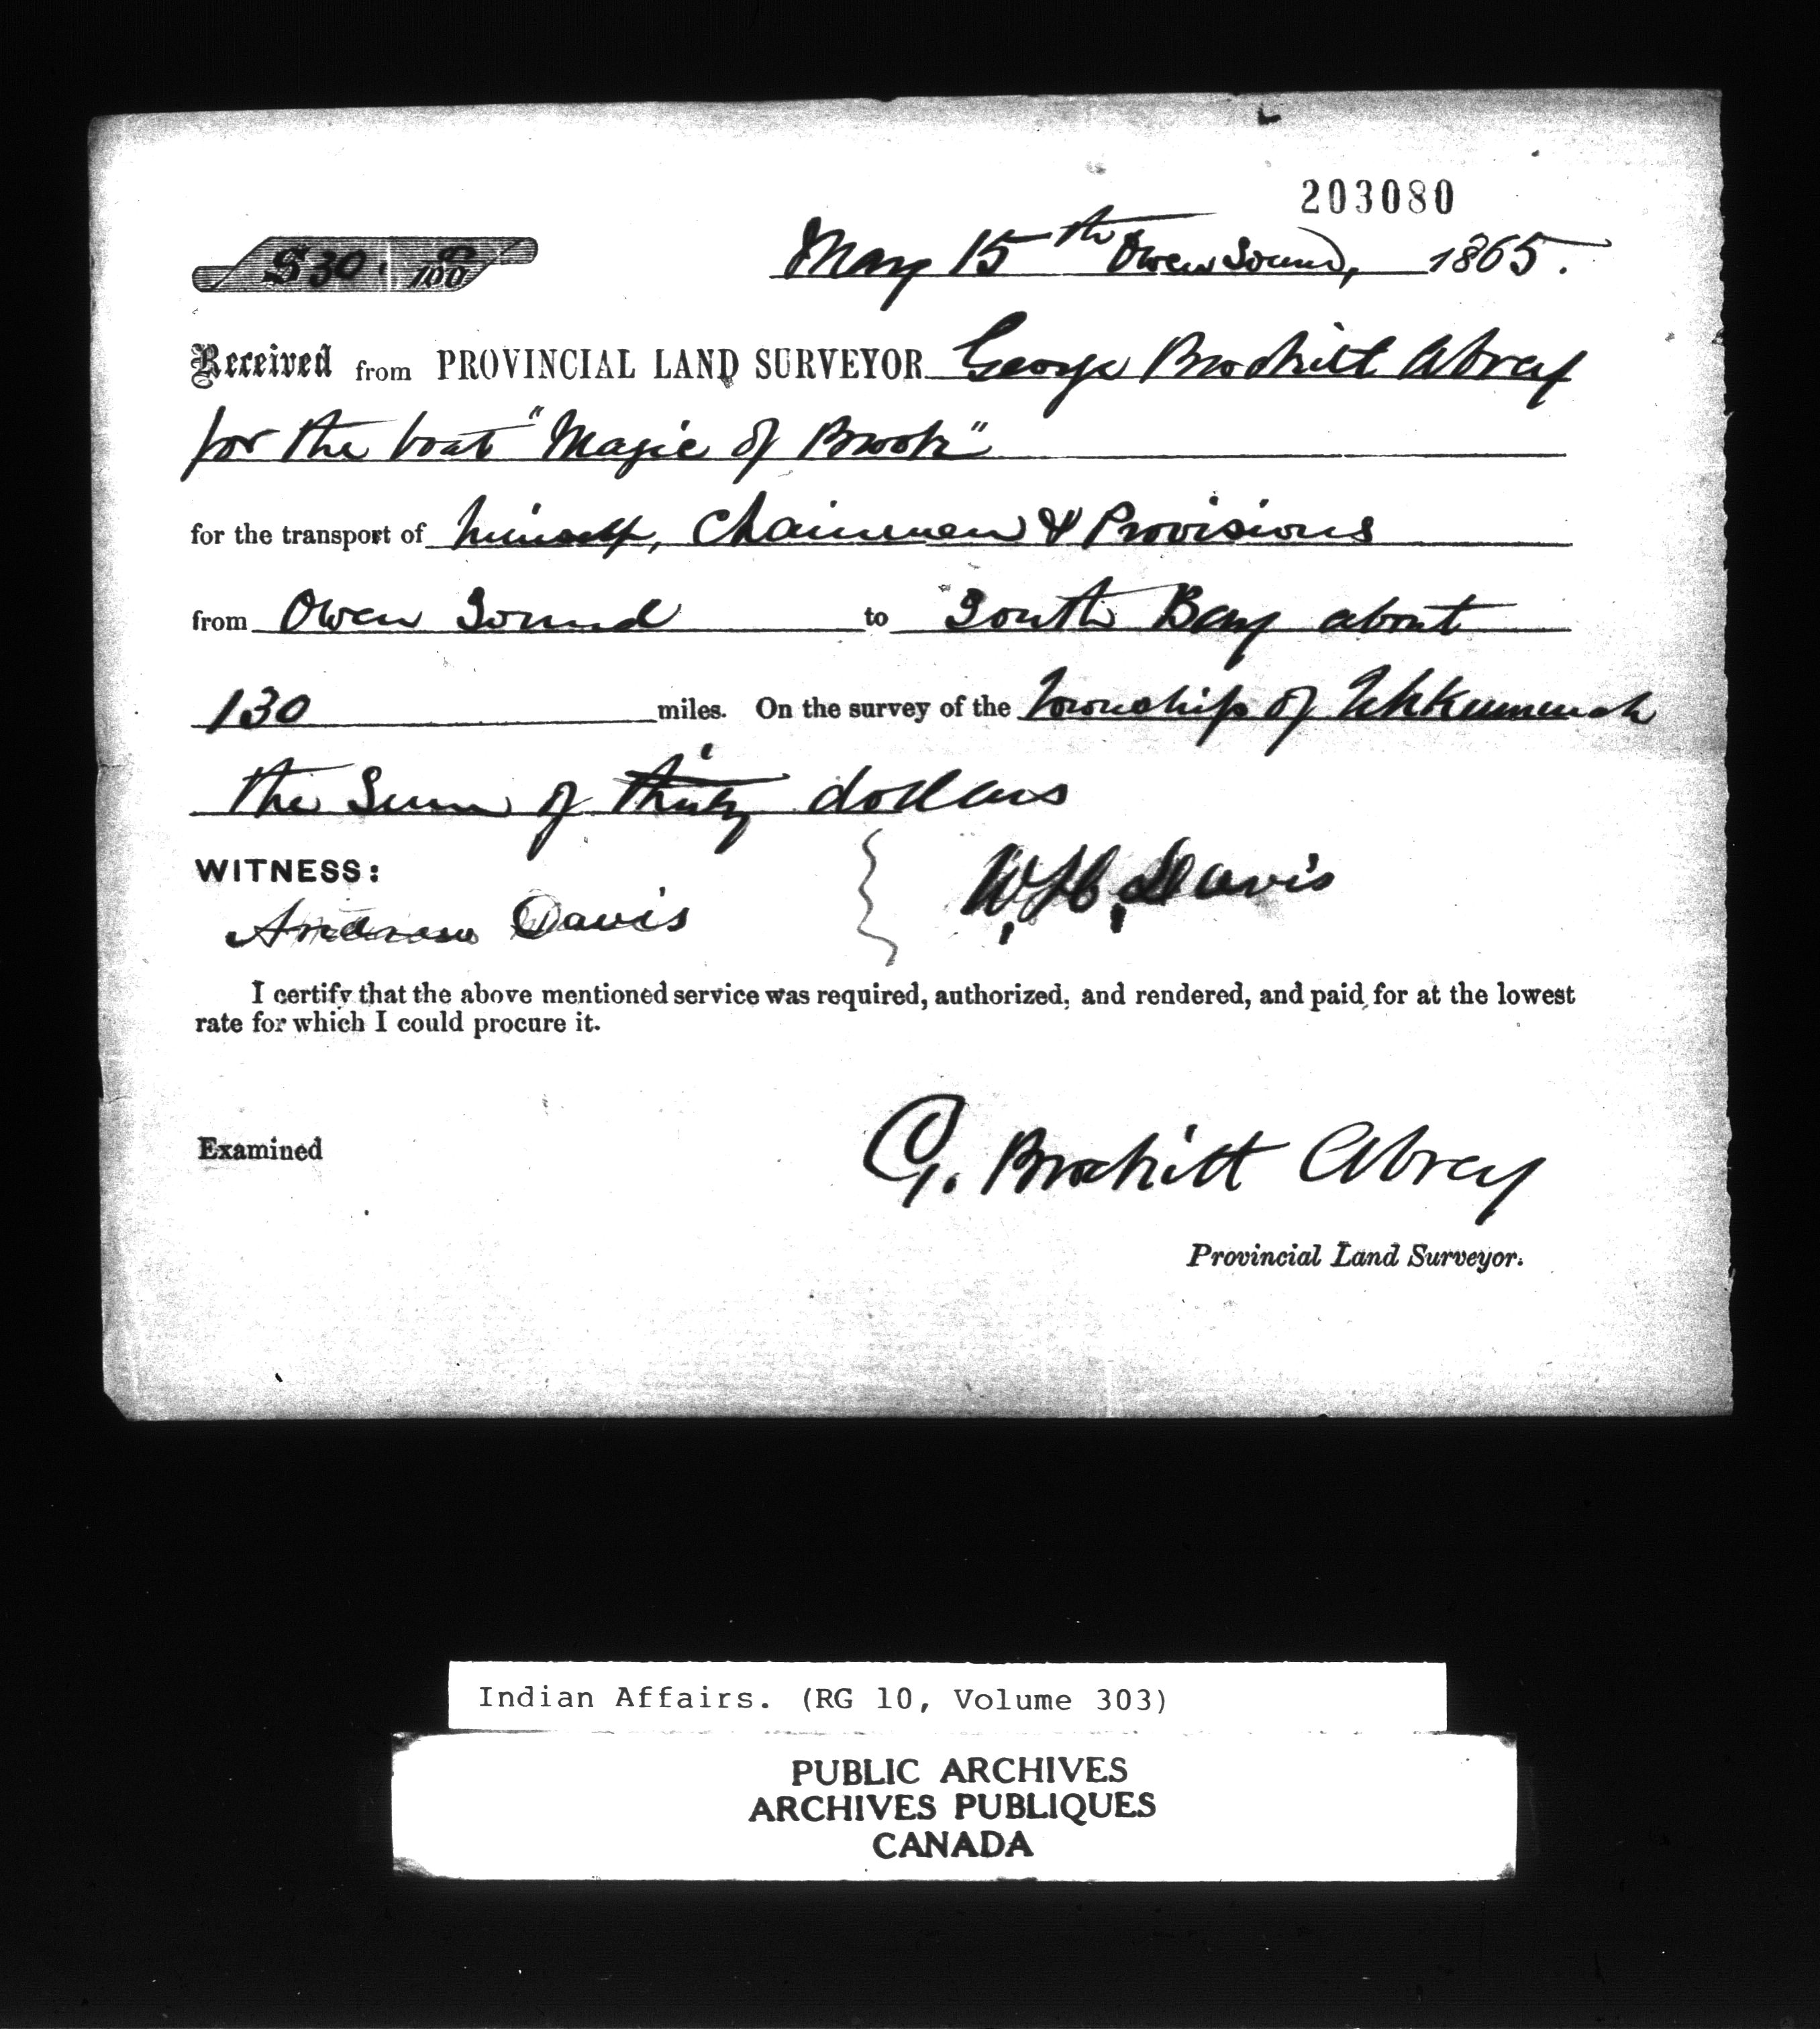 203080
$30. 00/100 May 15th Owen Sound, 1865.
Received from PROVINCIAL LAND SURVEYOR George Brockitt Abrey
for the boat "Magic of Brook"
for the transport of himself, Chainmen & Provisions
from Owen Sound to South Bay about
130 miles. On the survey of the Township of
the Sum of thirty dollars
WITNESS:
Andrew Davis W.H. Davis
I certify that the above mentioned service was required, authorized, and rendered, and paid for at the lowest
rate for which I could procure it.
Examined
G. Brockitt Abrey
Provincial Land Surveyor.
Indian Affairs. (RG 10, Volume 303)
PUBLIC ARCHIVES
ARCHIVES PUBLIQUES
CANADA